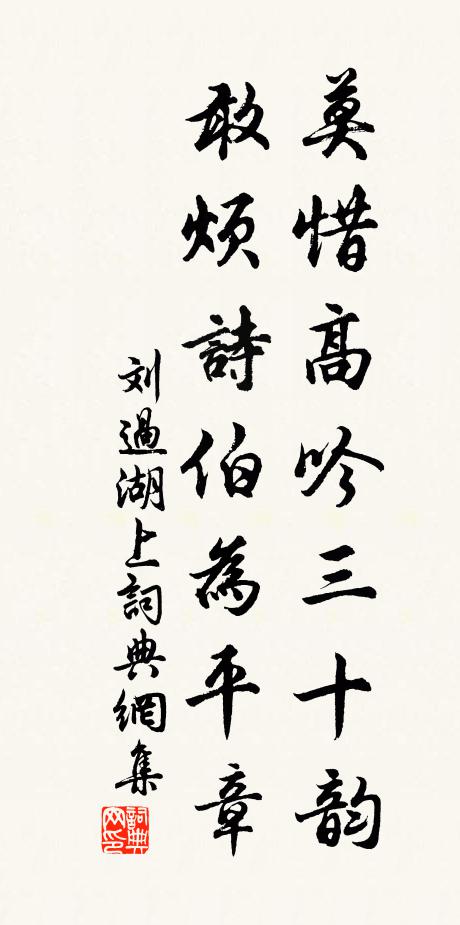 莫惜高吟三十韵
敢煩詩伯為平章
刘過湖上詞典網集
詞典网印